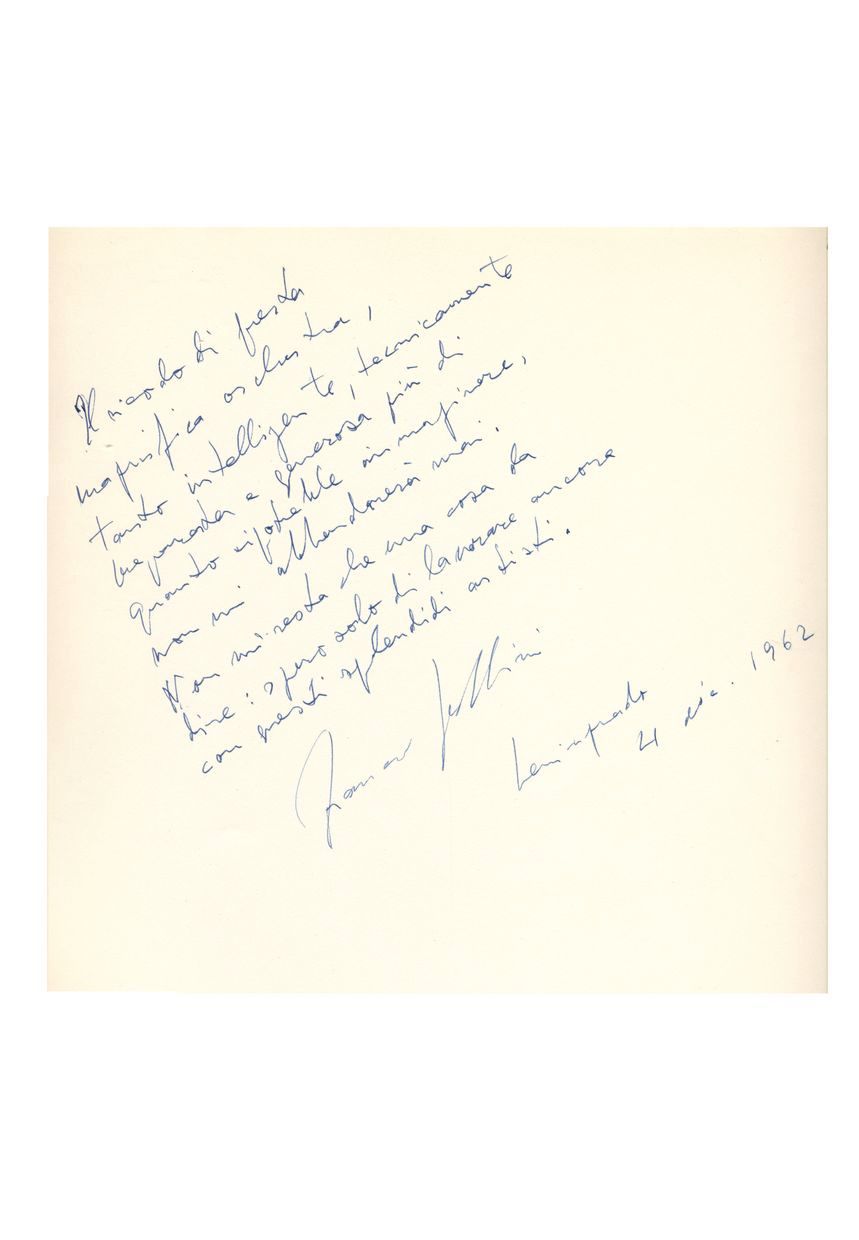 Il ricordo di questa
magnifica orchestra,
tanto intelligente, tecnicamente
preparata e generosa più di
quanto si potrebbe immaginare,
non mi abbandonerà mai.
Non mi resta che una cosa da
dire: spero solo di lavorare ancora
con questi splendidi artisti.
Franco
Leningrado
21 dic. 1962